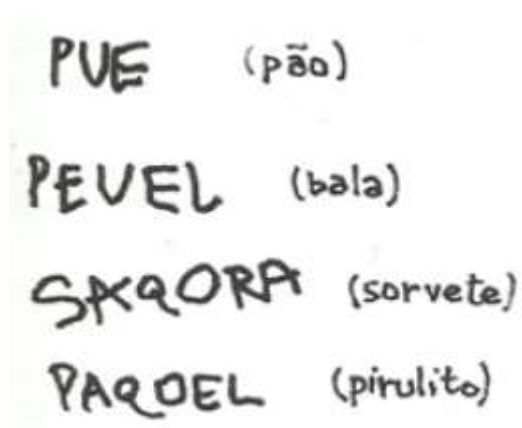 PUE (pão)
PEVEL (bala)
SAQORA (sorvete)
PAQOEL (pirulito)